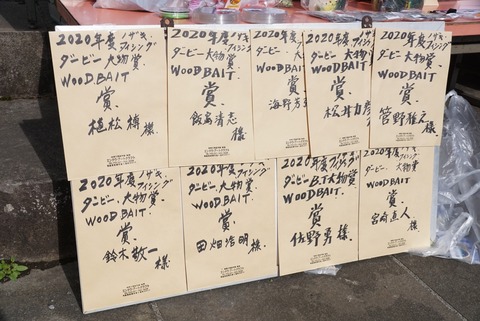 2020年度ノザキ
フィシング
ダービー大物賞
WOODBAIT
賞
植松 樽 様
2020年度ノザキ
フィシング
ダービー大物賞
WOODBAIT
賞
飯島清志
様
2020年度
ダービー大物
WOODBAIT
賞
海野
2020年度ノザキ
フィシング
ダービー大物
WOODBAIT
賞
松井
2020年度ノザキ
フィシング
ダービー大物賞
WOODBAIT
賞
菅野雅之
様
2020年度ノザキ
フィシング
ダービー大物賞
WOODBAIT
賞
鈴木敬一
様
2020年度ノザキ
フィシング
ダービー大物賞
WOODBAIT
賞
田畑浩明
様
2020年度ノザキ
フィシング
ダービーB.T大物賞
WOODBAIT
賞
佐野勇様
2020年度ノザキ
フィシング
ダービー大物賞
WOODBAIT
賞
宮崎直人
様